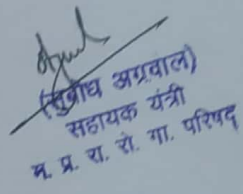 (सुबोध अग्रवाल)
सहायक यंत्री
म. प्र. रा. रो. गा. परिषद